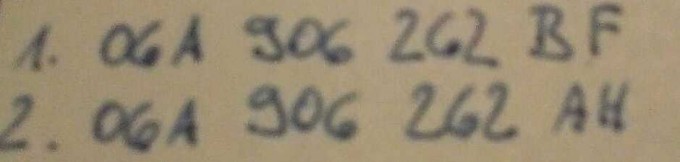 1. 06A 906 262 BF
2. 06A 906 262 AH